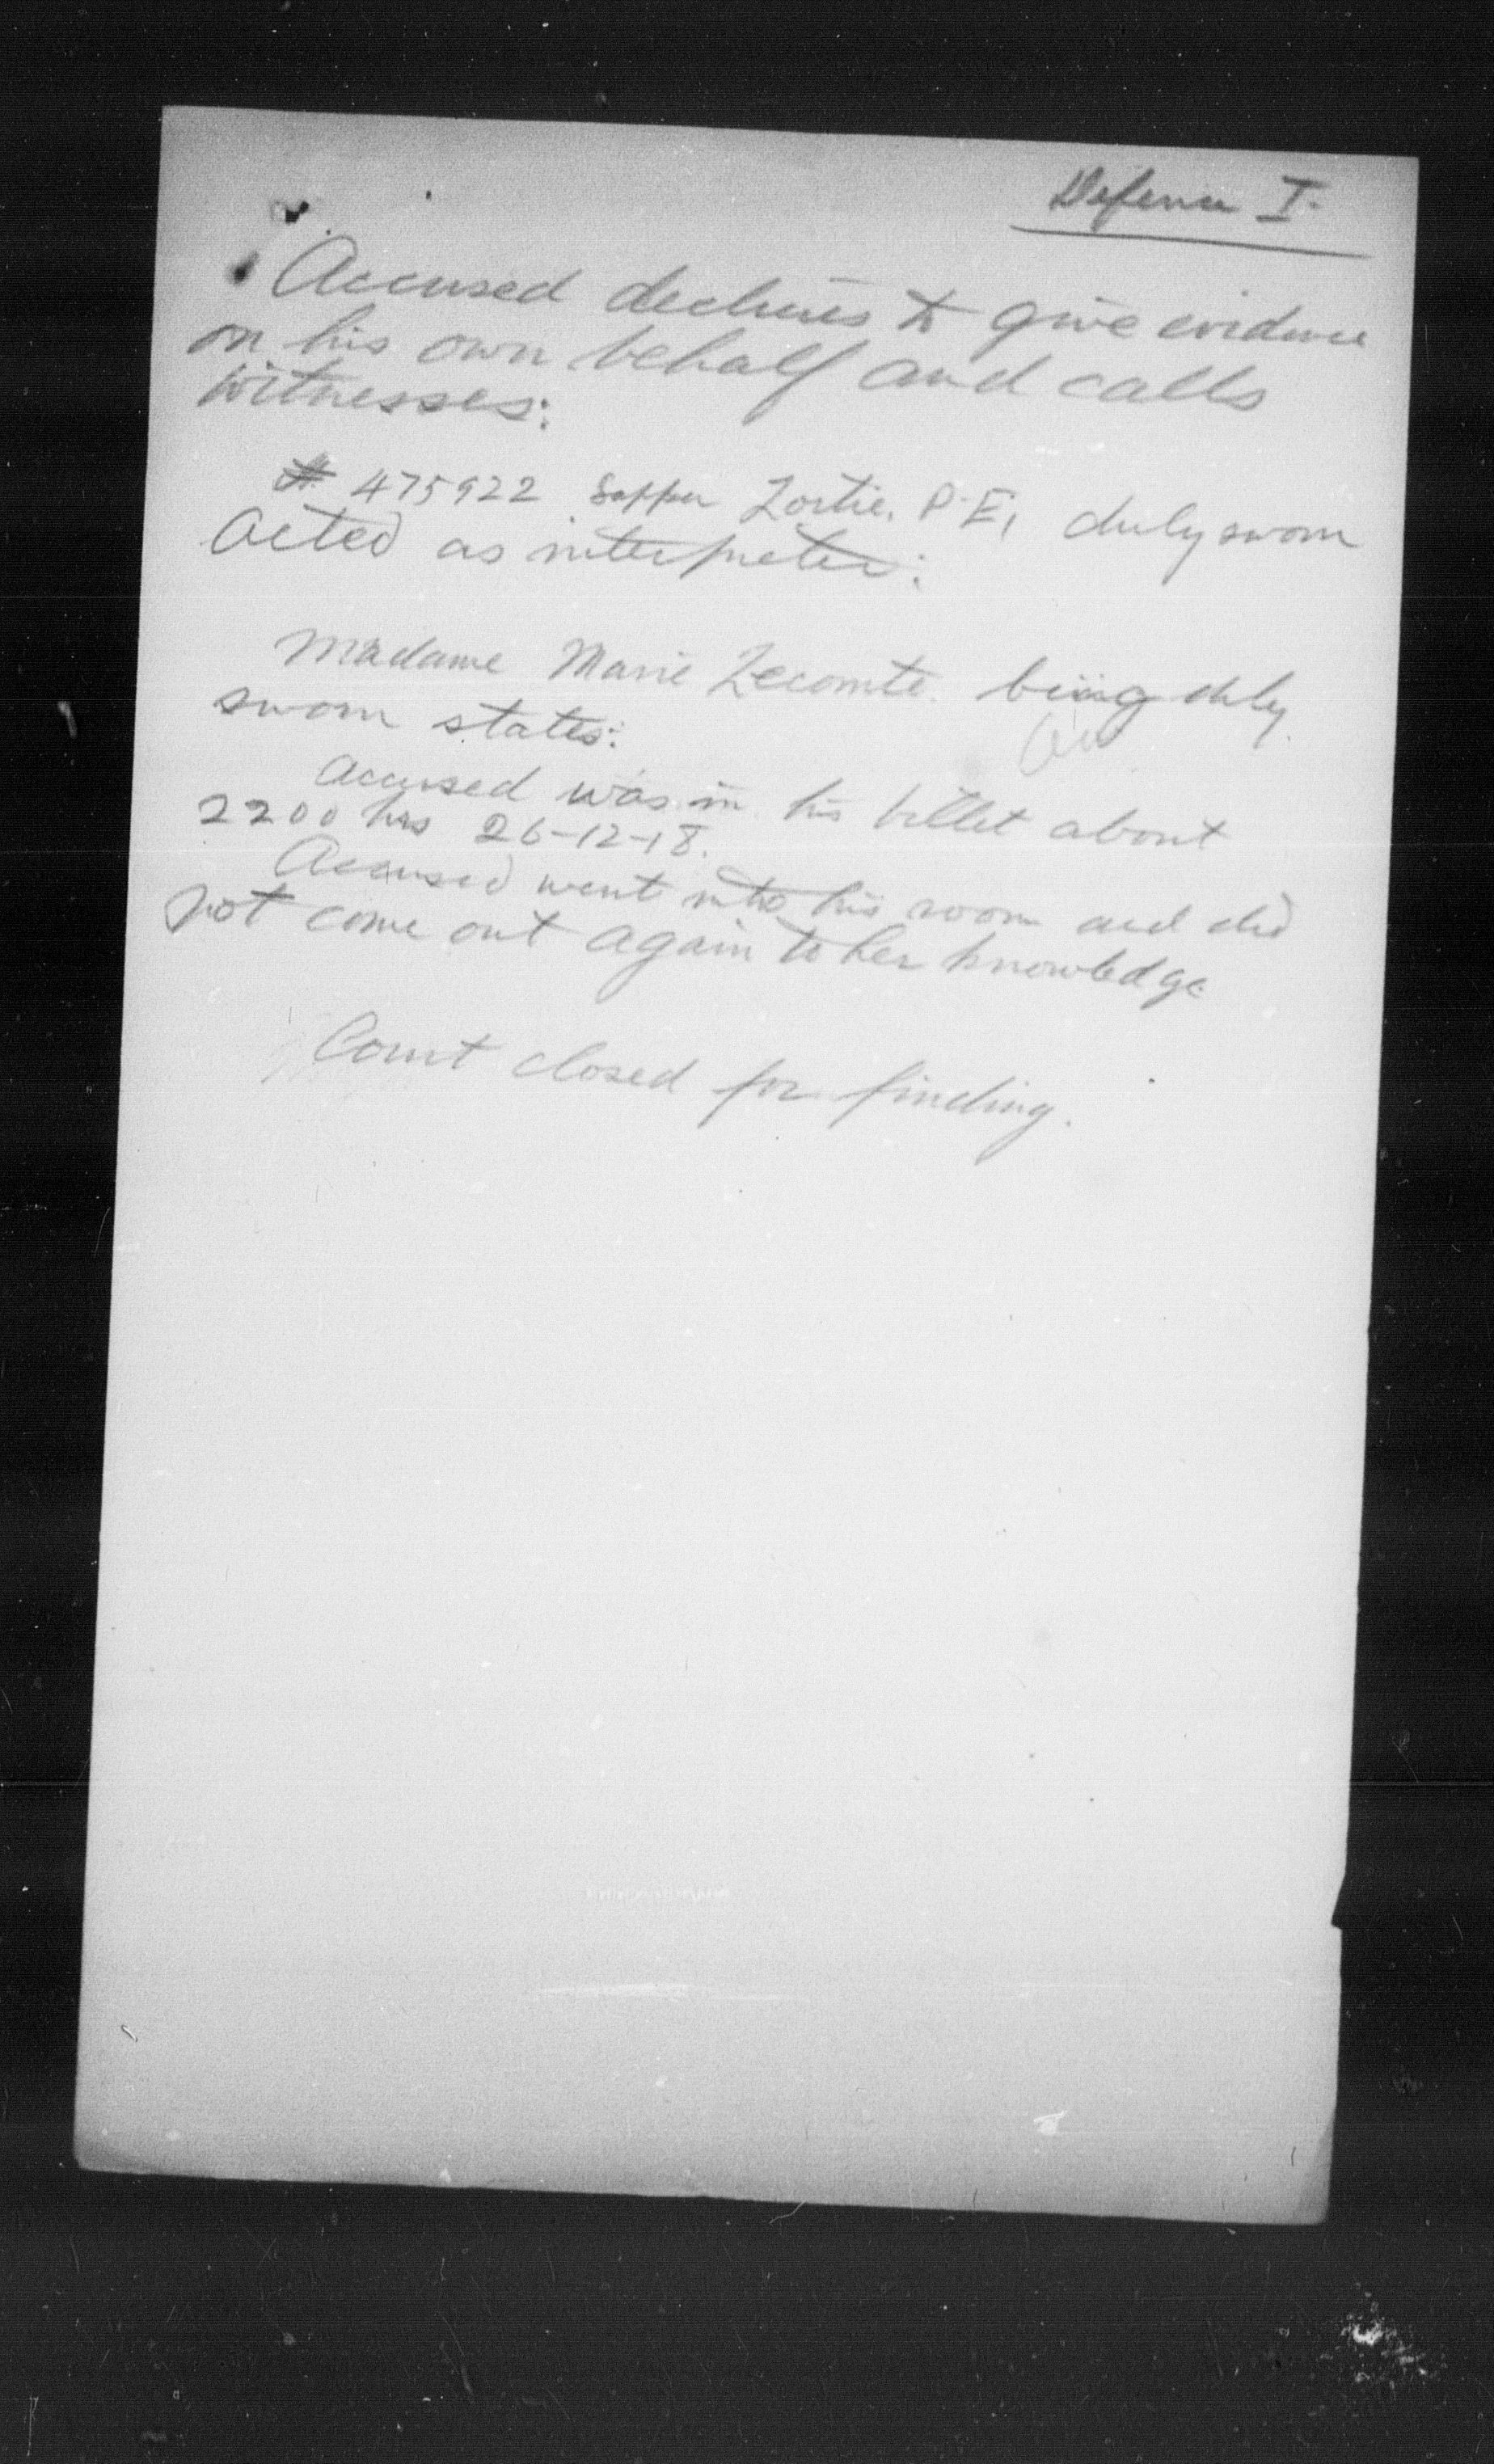 Defence I.
Accused declines to give evidence
on his own behalf and calls
witnesses:
# 475922 Sapper Lortie, P.E, duly sworn
acted as interpreter:
Madame Marie Lecomte being duly
sworn states:
Accused was in his billet about
2200 hrs 26-12-18.
Accused went into his room and did
not come out again to her knowledge
Court closed for finding.